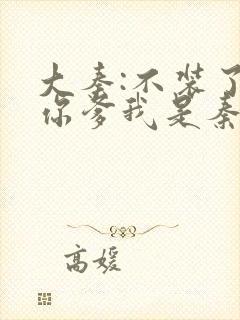 大秦:不装了
你爹我是秦
高媛